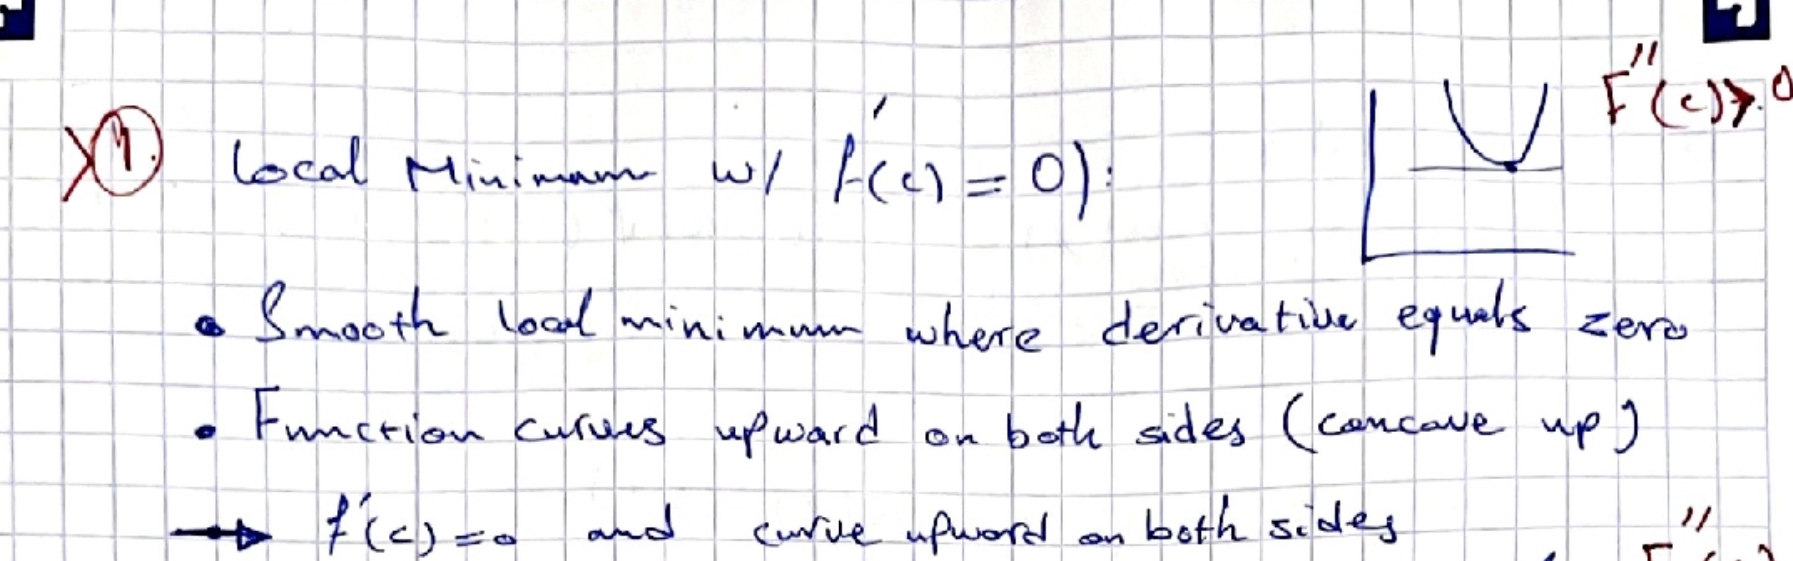 F''(c)>0
1. Local Minimum w/ f'(c) = 0):
• Smooth local minimum where derivative equals zero
• Function curves upward on both sides (concave up)
→ f'(c)=0 and curve upward on both sides